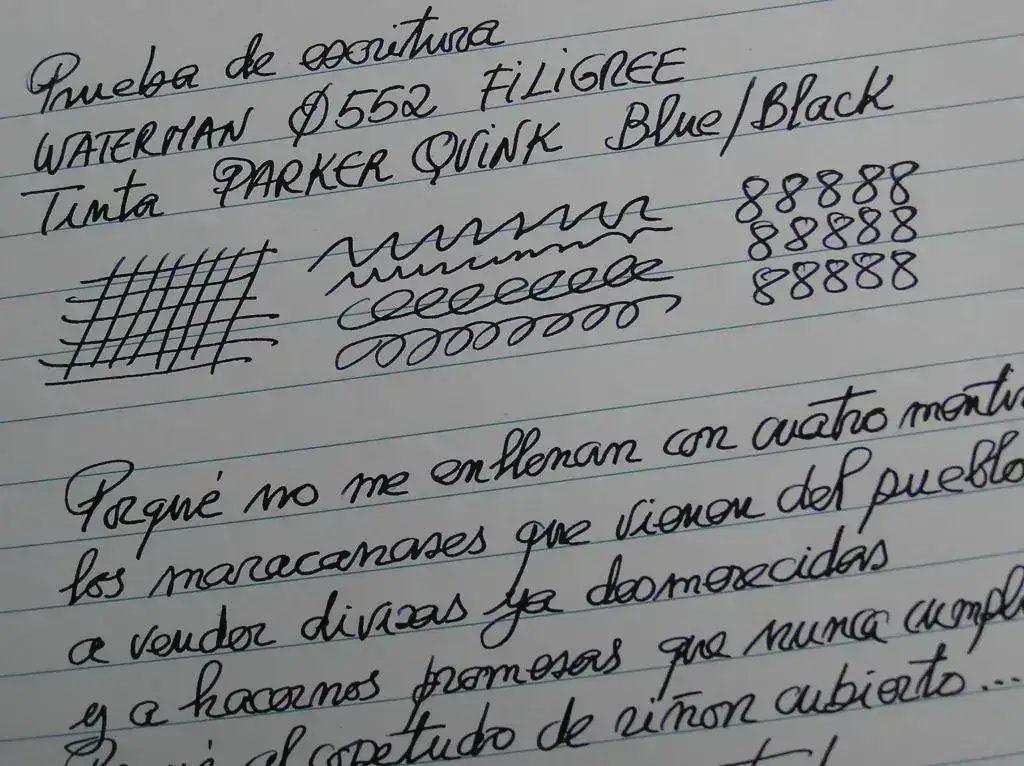 Prueba de escritura
WATERMAN 0552 FiLiGREE
Tinta PARKER QUiNK Blue/Black
88888
88888
88888
Porqué no me enllenan con cuatro
los maracanases que vienen del pueblo
a vender divisas ya desmerecidas
y a hacernos promesas que nunca
al copetudo de riñon cubierto...